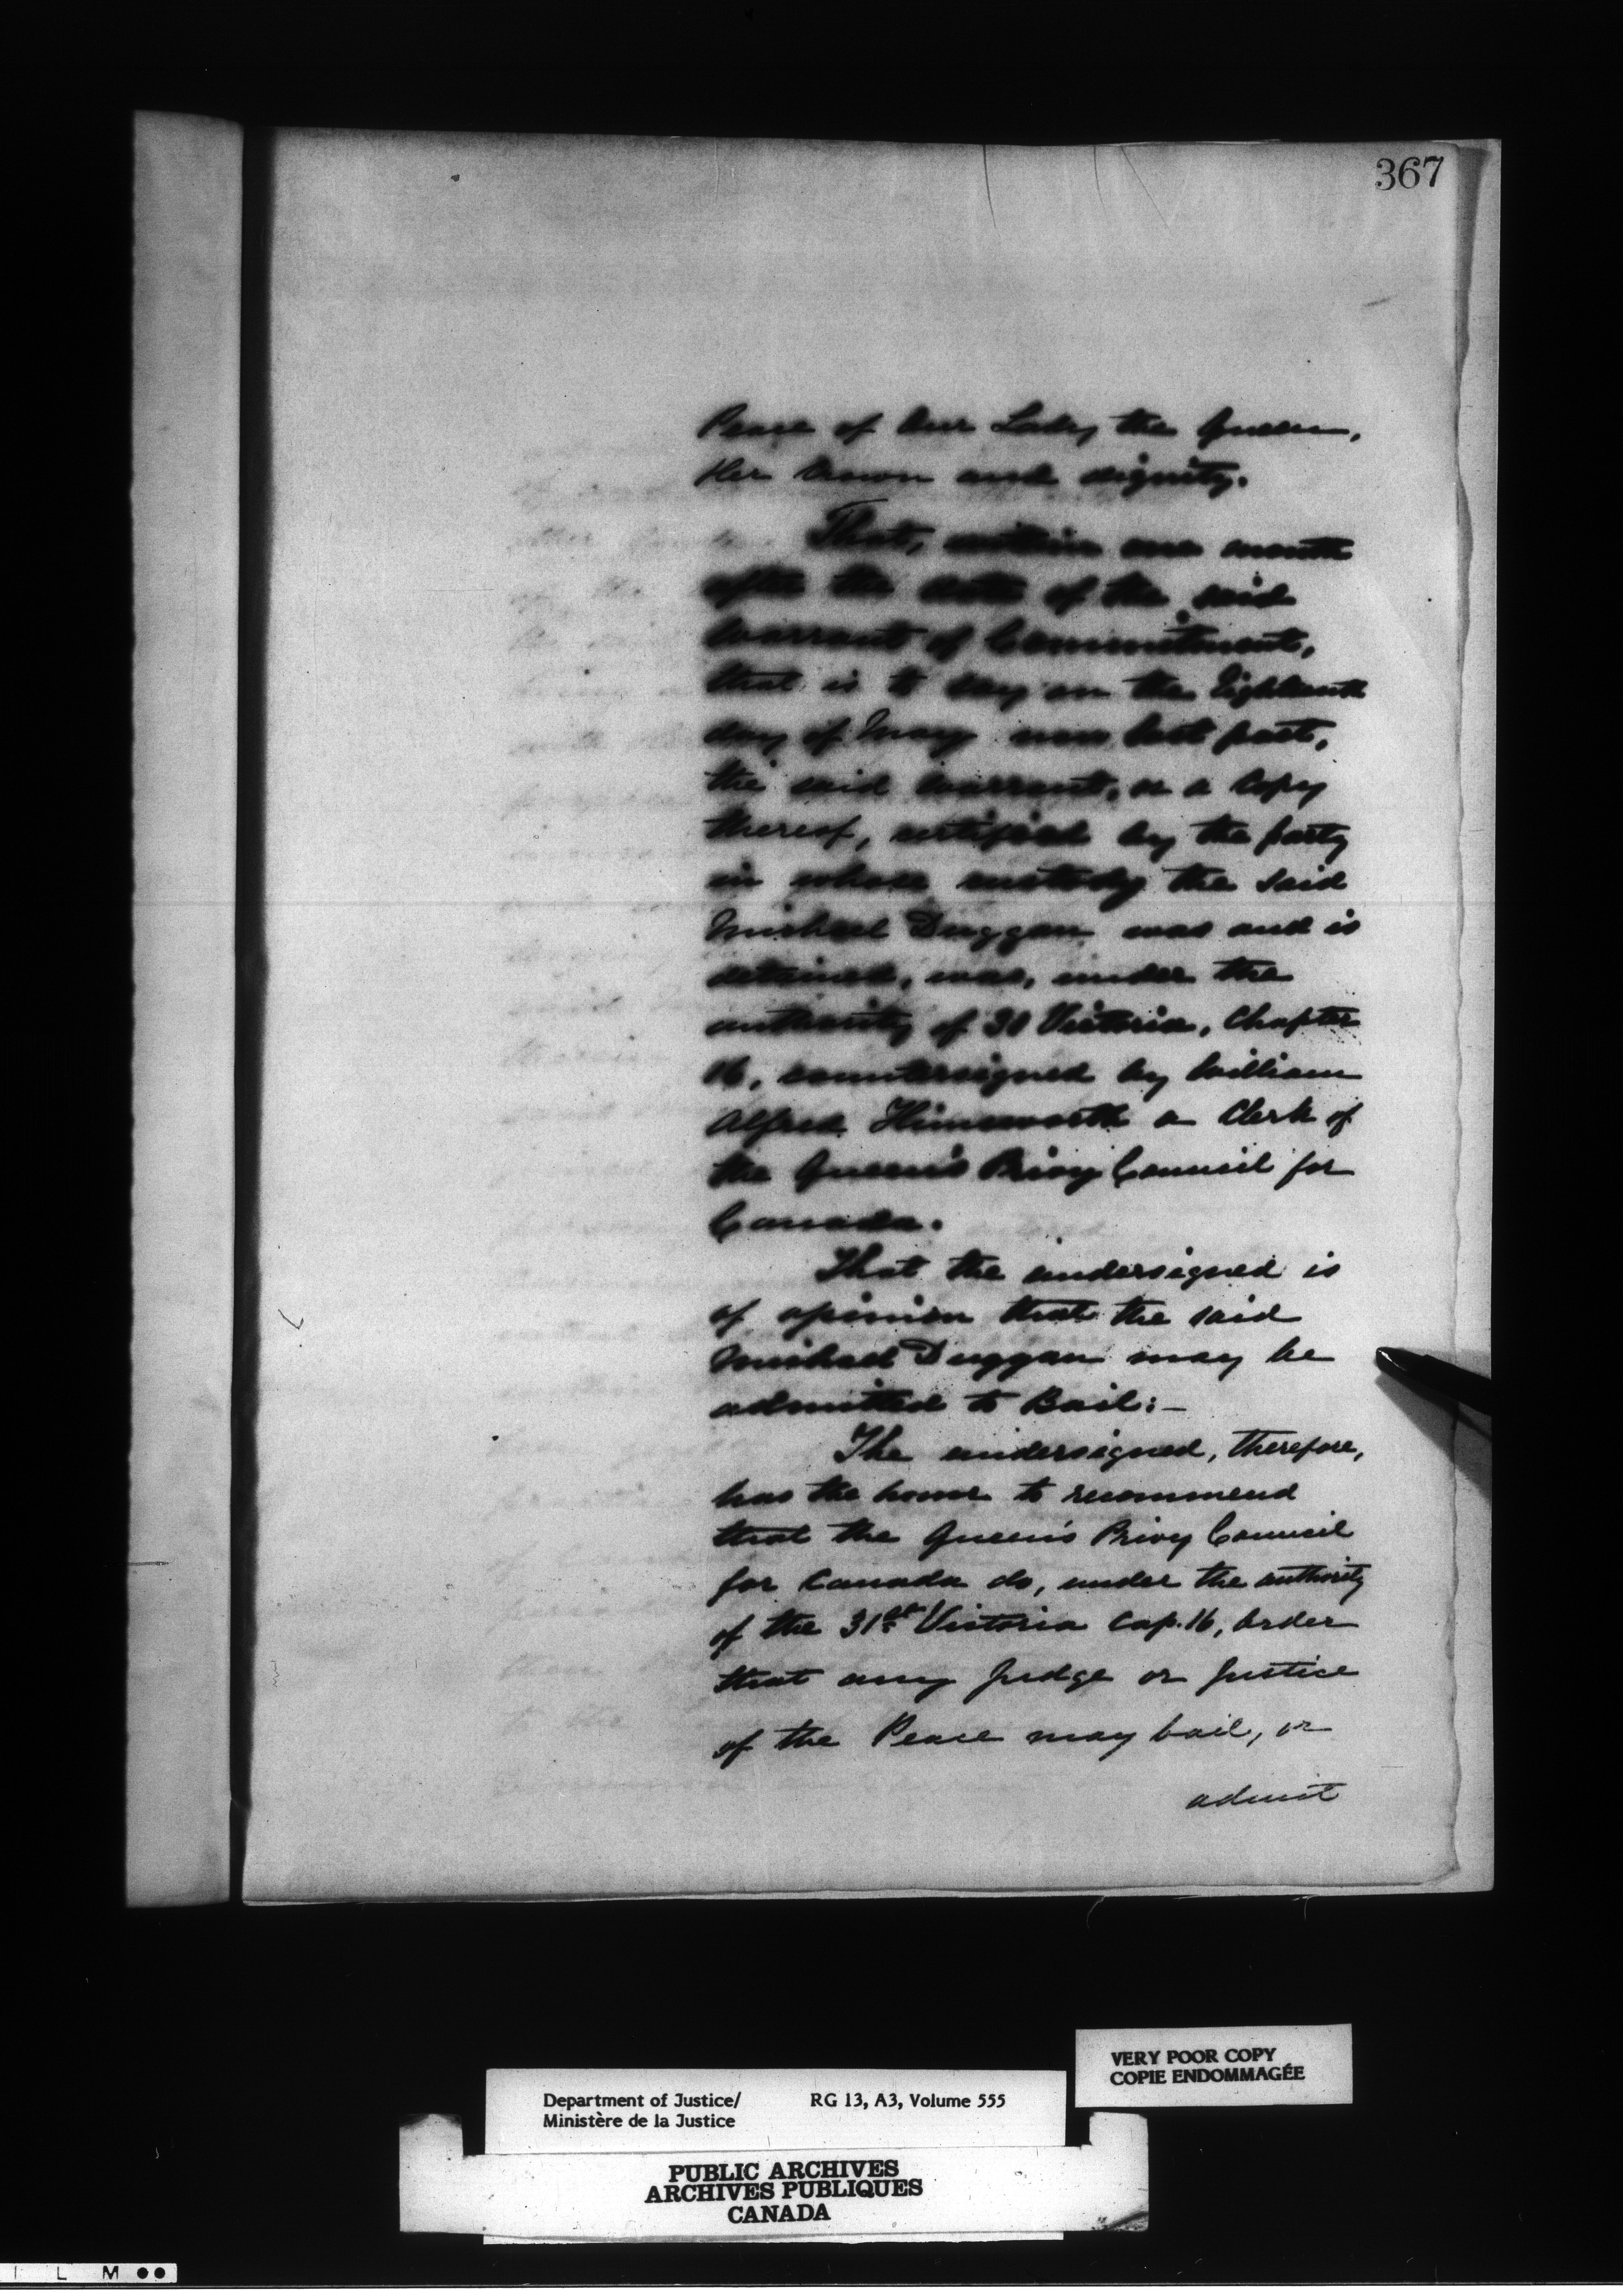 367
Peace of Our Lady the Queen,
Her Crown and dignity.
That, within one month
after the date of the said
Warrant of Commitment,
that is to say on the Eighteenth
day of May now last past,
the said Warrant, or a Copy
thereof, certified by the party
in whose custody the said
Michael Duggan was and is
detained, was, under the
authority of 31 Victoria, Chapter
16, countersigned by William
Alfred Himsworth a Clerk of
the Queen's Privy Council for
Canada.
That the undersigned is
of opinion that the said
Michael Duggan may be
admitted to Bail:—
The undersigned, therefore,
has the honor to recommend
that the Queen's Privy Council
for Canada do, under the authority
of the 31st Victoria Cap. 16, Order
that any Judge or Justice
of the Peace may bail, or
admit
VERY POOR COPY
COPIE ENDOMMAGÉE
Department of Justice/ RG 13, A3, Volume 555
Ministère de la Justice
PUBLIC ARCHIVES
ARCHIVES PUBLIQUES
CANADA
I L M